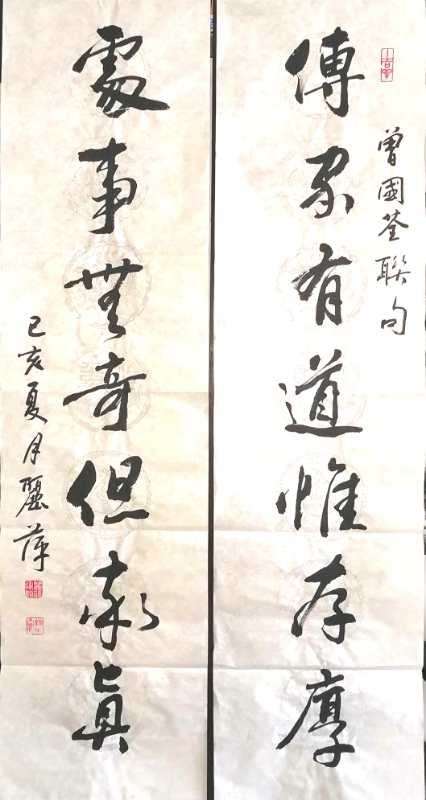 傳家有道惟存厚
曾國荃聯句
處事無奇但率真
己亥夏月麗萍